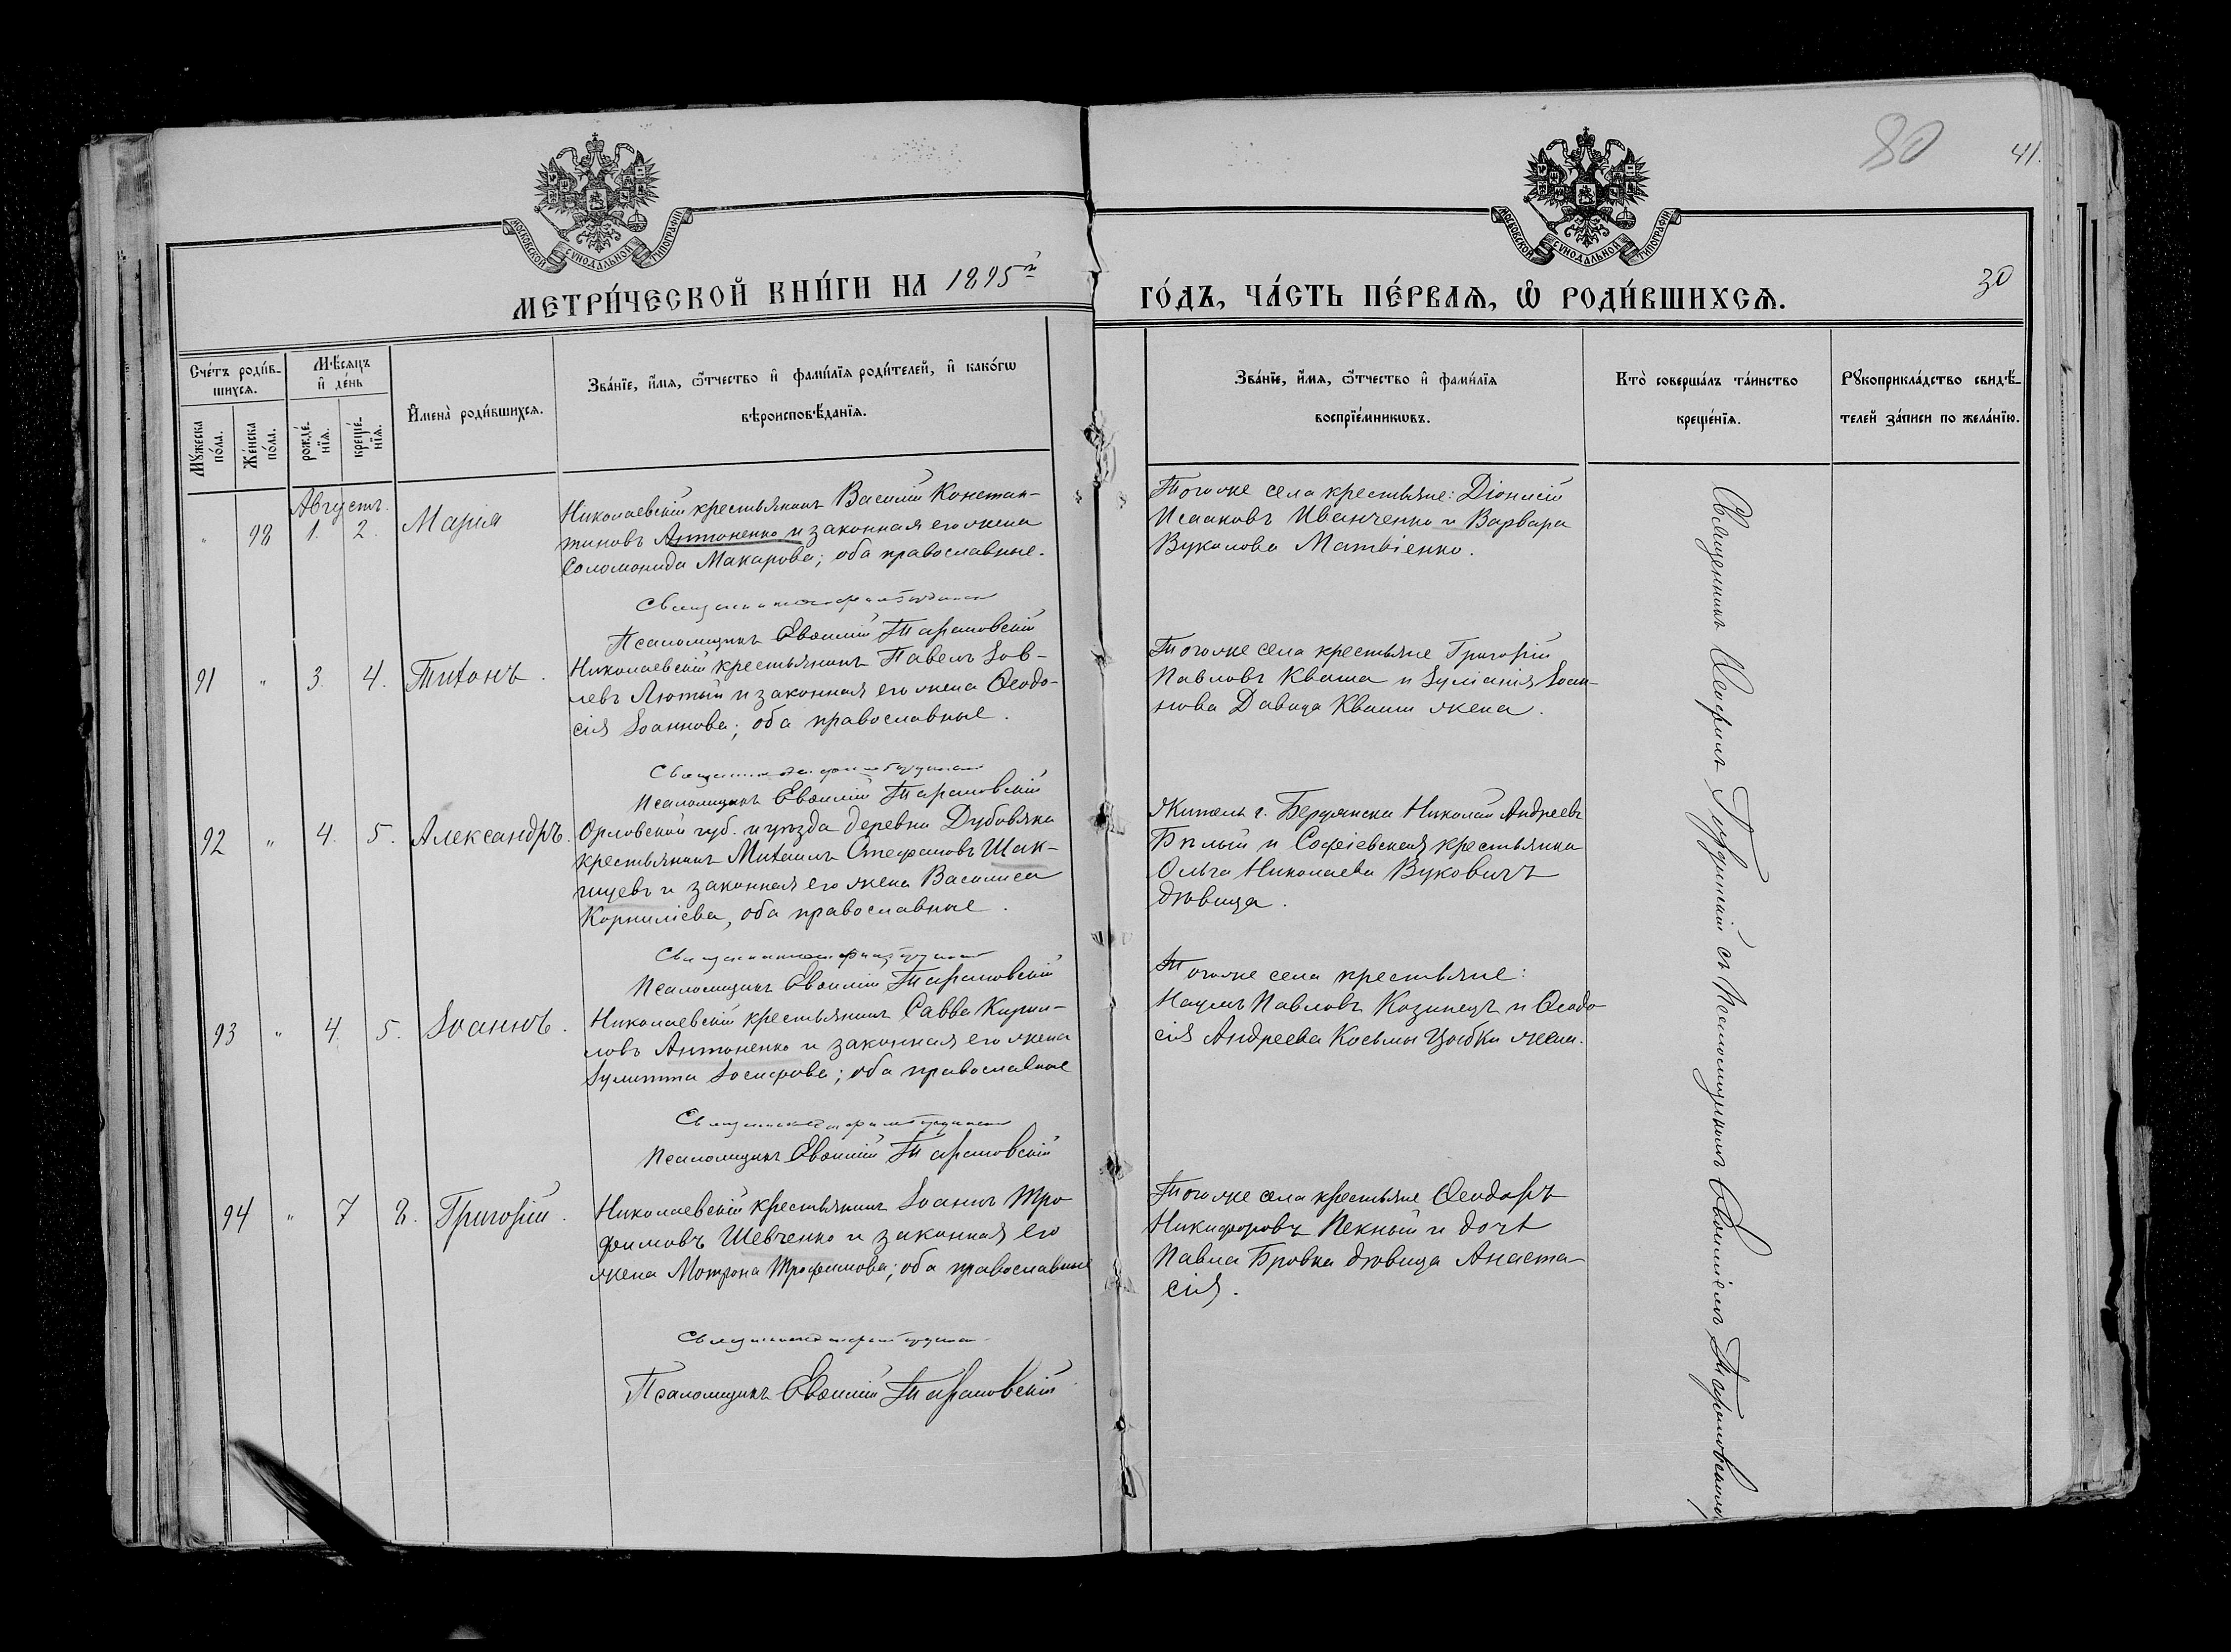 80
41.
МОСКОВСКОЙ СУНОДАЛЬНОЙ ТИПОГРАФІИ
МОСКОВСКОЙ СУНОДАЛЬНОЙ ТИПОГРАФІИ
МЕТРИ́ЧЕСКОЙ КНИ́ГИ НА 1895й
ГО́ДЪ, ЧА́СТЬ ПЕ́РВАѦ, Ѡ҆ РОДИ́ВШИХСѦ.
30
Сче́тъ роди́в-
шихсѧ.
Мѣ́сѧцъ
и҆ де́нь
Мꙋ́жеска
по́ла.
Же́нска
по́ла.
рожде́-
нїѧ.
креще́-
нїѧ.
И҆мена̀ роди́вшихсѧ.
Зва́нїе, и҆́мѧ, ѻ҆́тчество и҆ фами́лїѧ роди́телей, и҆ како́гѡ
вѣроисповѣ́данїѧ.
Зва́нїе, и҆́мѧ, ѻ҆́тчество и҆ фами́лїѧ
воспрїе́мникѡвъ.
Кто̀ соверша́лъ та́инство
креще́нїѧ.
Рꙋкоприкла́дство свидѣ́-
телей за́писи по жела́нїю.
Августъ.
" 98 1. 2. Марія
Николаевскій крестьянинъ Василій Констан-
тиновъ Антоненко и законная его жена
Соломонида Макарова; оба православные.
Священникъ
Псаломщикъ Евѳимій Тарановскій
Тогоже села крестьяне: Діонисій
Исааковъ Иванченко и Варвара
Вуколова Матвіенко.
91 " 3. 4. Тихонъ.
Николаевскій крестьянинъ Павелъ Іов-
левъ Лютый и законная его жена Ѳеодо-
сія Іоаннова; оба православные.
Священникъ
Псаломщикъ Евѳимій Тарановскій
Тогоже села крестьяне Григорій
Павловъ Кваша и Іуліанія Іоан-
нова Давида Кваши жена.
92 " 4. 5. Александръ.
Орловской губ. и уѣзда деревни Дубовика
крестьянинъ Михаилъ Стефановъ Шак-
и законная его жена Василиса
Корниліева, оба православные.
Священникъ
Псаломщикъ Евѳимій Тарановскій
Житель г. Бердянска Николай Андреевъ
Бѣлый и Софіевская крестьянка
Ольга Николаева Вуковичъ
дѣвица.
93 " 4. 5. Іоаннъ.
Николаевскій крестьянинъ Савва Кирил-
ловъ Антоненко и законная его жена
Іулитта Іосифова; оба православные
Священникъ
Псаломщикъ Евѳимій Тарановскій
Тогоже села крестьяне:
Наумъ Павловъ Козинецъ и Ѳеодо-
сія Андреева Косьмы Цыбки жена.
94 " 7 8. Григорій.
Николаевскій крестьянинъ Іоаннъ Тро
фимовъ Шевченко и законная его
жена Мотрона Трофимова; оба православные
Священникъ
Псаломщикъ Евѳимій Тарановскій
Тогоже села крестьяне Ѳеодоръ
Никифоровъ Пекный и дочь
Павла Бровка дѣвица Анаста-
сія.
Священникъ Ѳеофилъ съ Псаломщикомъ Евѳиміемъ Тарановскимъ